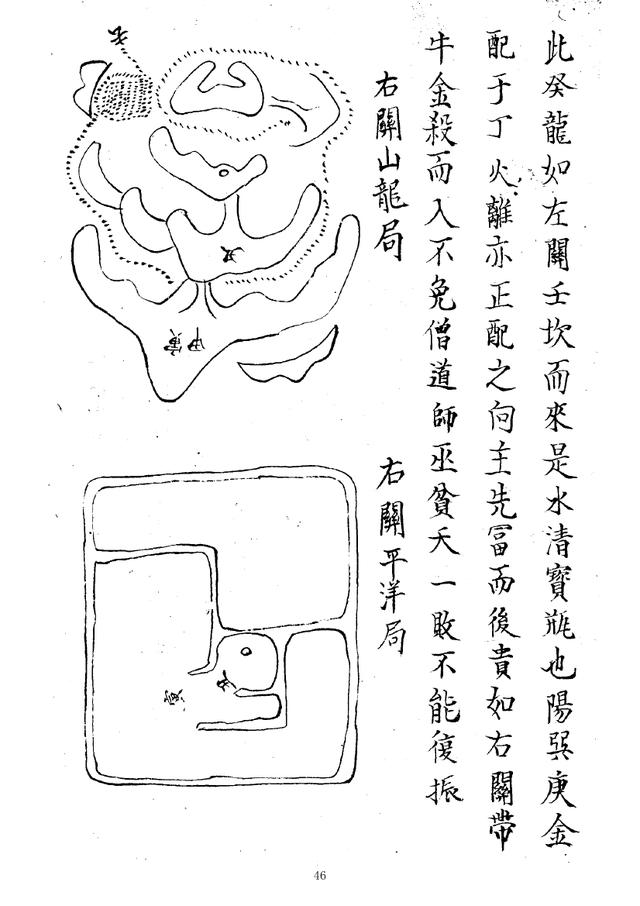 此癸龍如左關壬坎而來是水清寶瓶也陽巽庚金
配于丁火離亦正配之向主先冨而後貴如右關帶
牛金殺而入不免僧道師巫貧夭一敗不能復振
右關山龍局
右關平洋局
甲寅
46